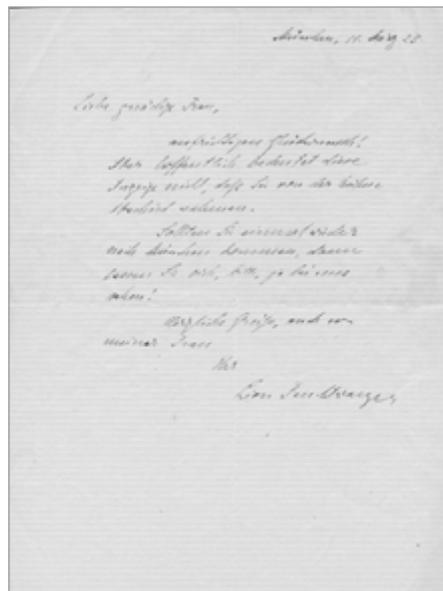 München, 11. März 25
Liebe gnädige Frau,
aufrichtigen Glückwunsch!
Aber hoffentlich bedeutet diese
Anzeige nicht, daß Sie von der Bühne
Abschied nehmen.
Sollten Sie einmal wieder
nach München kommen, dann
lassen Sie sich, bitte, ja bei uns
sehen!
Herzliche Grüße, auch von
meiner Frau
Ihr
Lion Feuchtwanger